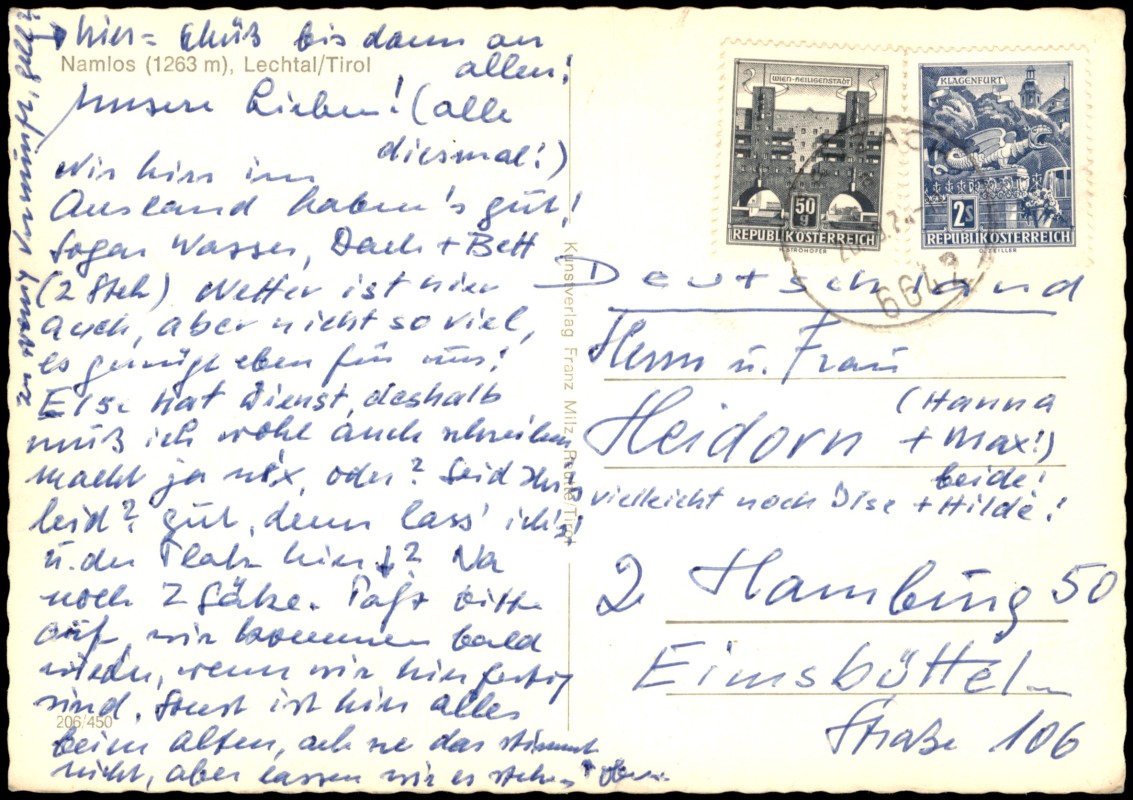 hier = Tschüß bis dann an
allen!
Namlos (1263 m), Lechtal/Tirol
Unsere Lieben! (alle
diesmal!)
Wir hier im
Ausland haben's gut!
Sogar Wasser, Dach + Bett
(2 Stck) Wetter ist hier
auch, aber nicht so viel,
es genügt eben für uns!
Else hat Dienst, deshalb
muß ich wohl auch schreiben
macht ja nix, oder? Seid Ihr's
leid? gut, denn lass' ich's!
u. der Platz hier? Na
noch 2 Sätze. Paßt bitte
auf, wir kommen bald
wieder, wenn wir hier fertig
sind. Sonst ist hier alles
beim alten, ach ne das stimmt
nicht, aber lassen wir es stehen
206/450
Kunstverlag Franz Milz, Reutte/Tirol
WIEN-HEILIGENSTADT
50
g
REPUBLIK ÖSTERREICH
H. STROHOFER
KLAGENFURT
2S
REPUBLIK ÖSTERREICH
O. ZEILLER
6642
Deutschland
Herrn u. Frau
(Hanna
Heidorn + Max!)
beide!
vielleicht noch Ilse + Hilde!
2 Hamburg 50
Eimsbüttel-
Straße 106